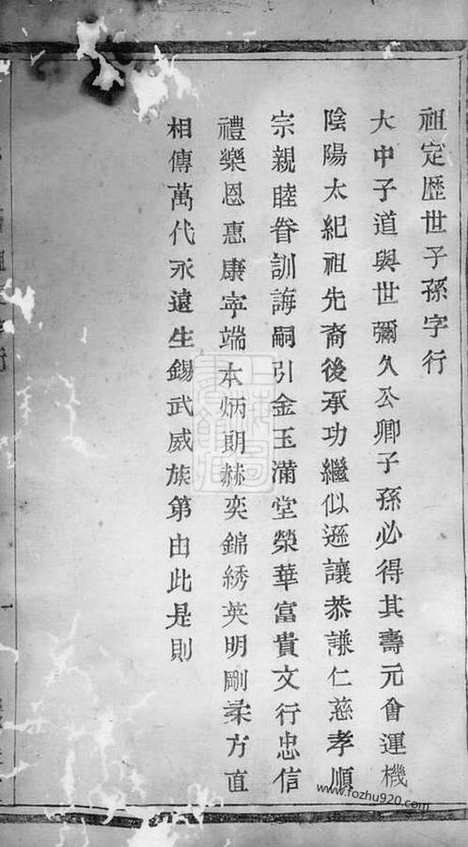 祖定歷世子孫字行
大中子道與世彌久公卿子孫必得其壽元會運機
陰陽太紀祖先裔後承功繼似遜讓恭謙仁慈孝順
宗親睦眷訓誨嗣引金玉滿堂榮華富貴文行忠信
禮樂恩惠康寧端本炳朗赫奕錦綉英明剛柔方直
相傳萬代永遠生錫武威族第由此是則
www.fozhu920.com